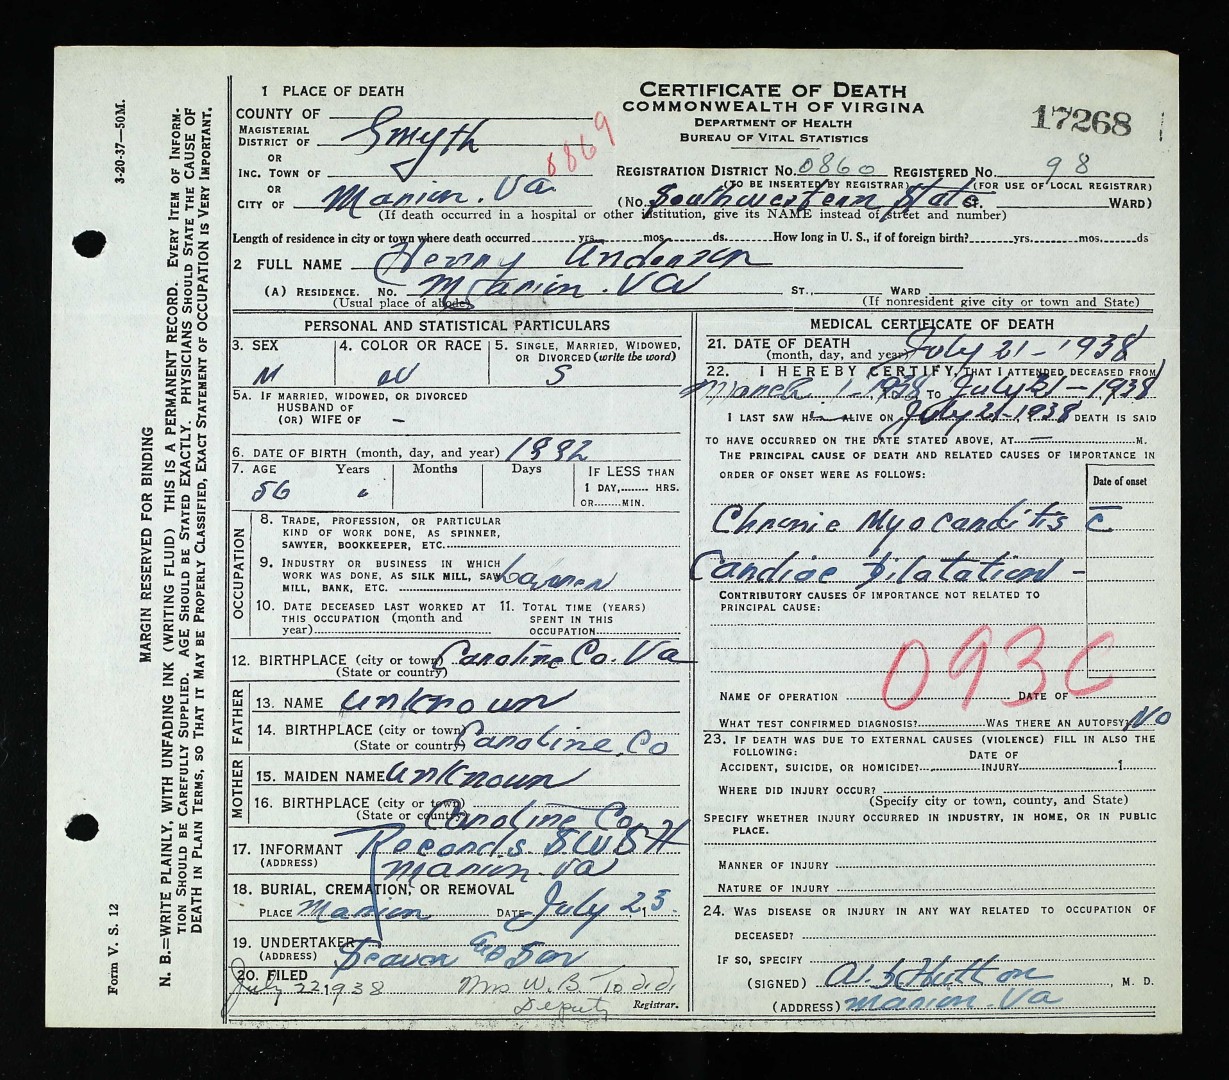 1 PLACE OF DEATH
COUNTY OF Smyth
MAGISTERIAL DISTRICT OF
OR
INC. TOWN OF
OR
CITY OF Marion. Va.
8869
CERTIFICATE OF DEATH
COMMONWEALTH OF VIRGINIA
DEPARTMENT OF HEALTH
BUREAU OF VITAL STATISTICS
17268
REGISTRATION DISTRICT NO. 0860 REGISTERED NO. 98
(TO BE INSERTED BY REGISTRAR) (FOR USE OF LOCAL REGISTRAR)
(No. Southwestern State St. WARD)
(If death occurred in a hospital or other institution, give its NAME instead of street and number)
Length of residence in city or town where death occurred yrs. mos. ds. How long in U. S., if of foreign birth? yrs. mos. ds
2 FULL NAME Henry Anderson
(A) RESIDENCE. No. Marion. Va ST., WARD
(Usual place of abode) (If nonresident give city or town and State)
PERSONAL AND STATISTICAL PARTICULARS
3. SEX M
4. COLOR OR RACE W
5. SINGLE, MARRIED, WIDOWED, OR DIVORCED (write the word) S
5A. IF MARRIED, WIDOWED, OR DIVORCED
HUSBAND OF
(OR) WIFE OF –
6. DATE OF BIRTH (month, day, and year) 1882
7. AGE Years Months Days IF LESS THAN
56 1 DAY, HRS.
OR MIN.
OCCUPATION
8. TRADE, PROFESSION, OR PARTICULAR
KIND OF WORK DONE, AS SPINNER,
SAWYER, BOOKKEEPER, ETC.
9. INDUSTRY OR BUSINESS IN WHICH
WORK WAS DONE, AS SILK MILL, SAW
MILL, BANK, ETC.
10. DATE DECEASED LAST WORKED AT
THIS OCCUPATION (month and
year)
11. TOTAL TIME (YEARS)
SPENT IN THIS
OCCUPATION
12. BIRTHPLACE (city or town) Caroline Co. Va
(State or country)
FATHER
13. NAME Unknown
14. BIRTHPLACE (city or town)
(State or country) Caroline Co
MOTHER
15. MAIDEN NAME Unknown
16. BIRTHPLACE (city or town)
(State or country) Caroline Co.
17. INFORMANT Records SWSH
(ADDRESS) Marion. Va
18. BURIAL, CREMATION, OR REMOVAL
PLACE Marion DATE July 23.
19. UNDERTAKER
(ADDRESS) Seaver & Son
20. FILED
July 22 1938 Mrs W. B. Todd
Deputy Registrar.
MEDICAL CERTIFICATE OF DEATH
21. DATE OF DEATH
(month, day, and year) July 21 – 1938
22. I HEREBY CERTIFY, THAT I ATTENDED DECEASED FROM
March 1 – 1938 TO July 21 – 1938
I LAST SAW Him ALIVE ON July 21 – 1938 DEATH IS SAID
TO HAVE OCCURRED ON THE DATE STATED ABOVE, AT — M.
THE PRINCIPAL CAUSE OF DEATH AND RELATED CAUSES OF IMPORTANCE IN
ORDER OF ONSET WERE AS FOLLOWS:
Date of onset
Chronic Myocarditis c̄
Cardiac Dilatation –
CONTRIBUTORY CAUSES OF IMPORTANCE NOT RELATED TO
PRINCIPAL CAUSE:
093C
NAME OF OPERATION DATE OF
WHAT TEST CONFIRMED DIAGNOSIS? WAS THERE AN AUTOPSY No
23. IF DEATH WAS DUE TO EXTERNAL CAUSES (VIOLENCE) FILL IN ALSO THE
FOLLOWING:
DATE OF
ACCIDENT, SUICIDE, OR HOMICIDE? INJURY 1
WHERE DID INJURY OCCUR?
(Specify city or town, county, and State)
SPECIFY WHETHER INJURY OCCURRED IN INDUSTRY, IN HOME, OR IN PUBLIC
PLACE.
MANNER OF INJURY
NATURE OF INJURY
24. WAS DISEASE OR INJURY IN ANY WAY RELATED TO OCCUPATION OF
DECEASED?
IF SO, SPECIFY
(SIGNED) Hutton, M. D.
(ADDRESS) Marion. Va
3-20-37—50M.
MARGIN RESERVED FOR BINDING
N. B.=WRITE PLAINLY, WITH UNFADING INK (WRITING FLUID) THIS IS A PERMANENT RECORD. EVERY ITEM OF INFORM-
TION SHOULD BE CAREFULLY SUPPLIED. AGE SHOULD BE STATED EXACTLY. PHYSICIANS SHOULD STATE THE CAUSE OF
DEATH IN PLAIN TERMS, SO THAT IT MAY BE PROPERLY CLASSIFIED, EXACT STATEMENT OF OCCUPATION IS VERY IMPORTANT.
Form V. S. 12